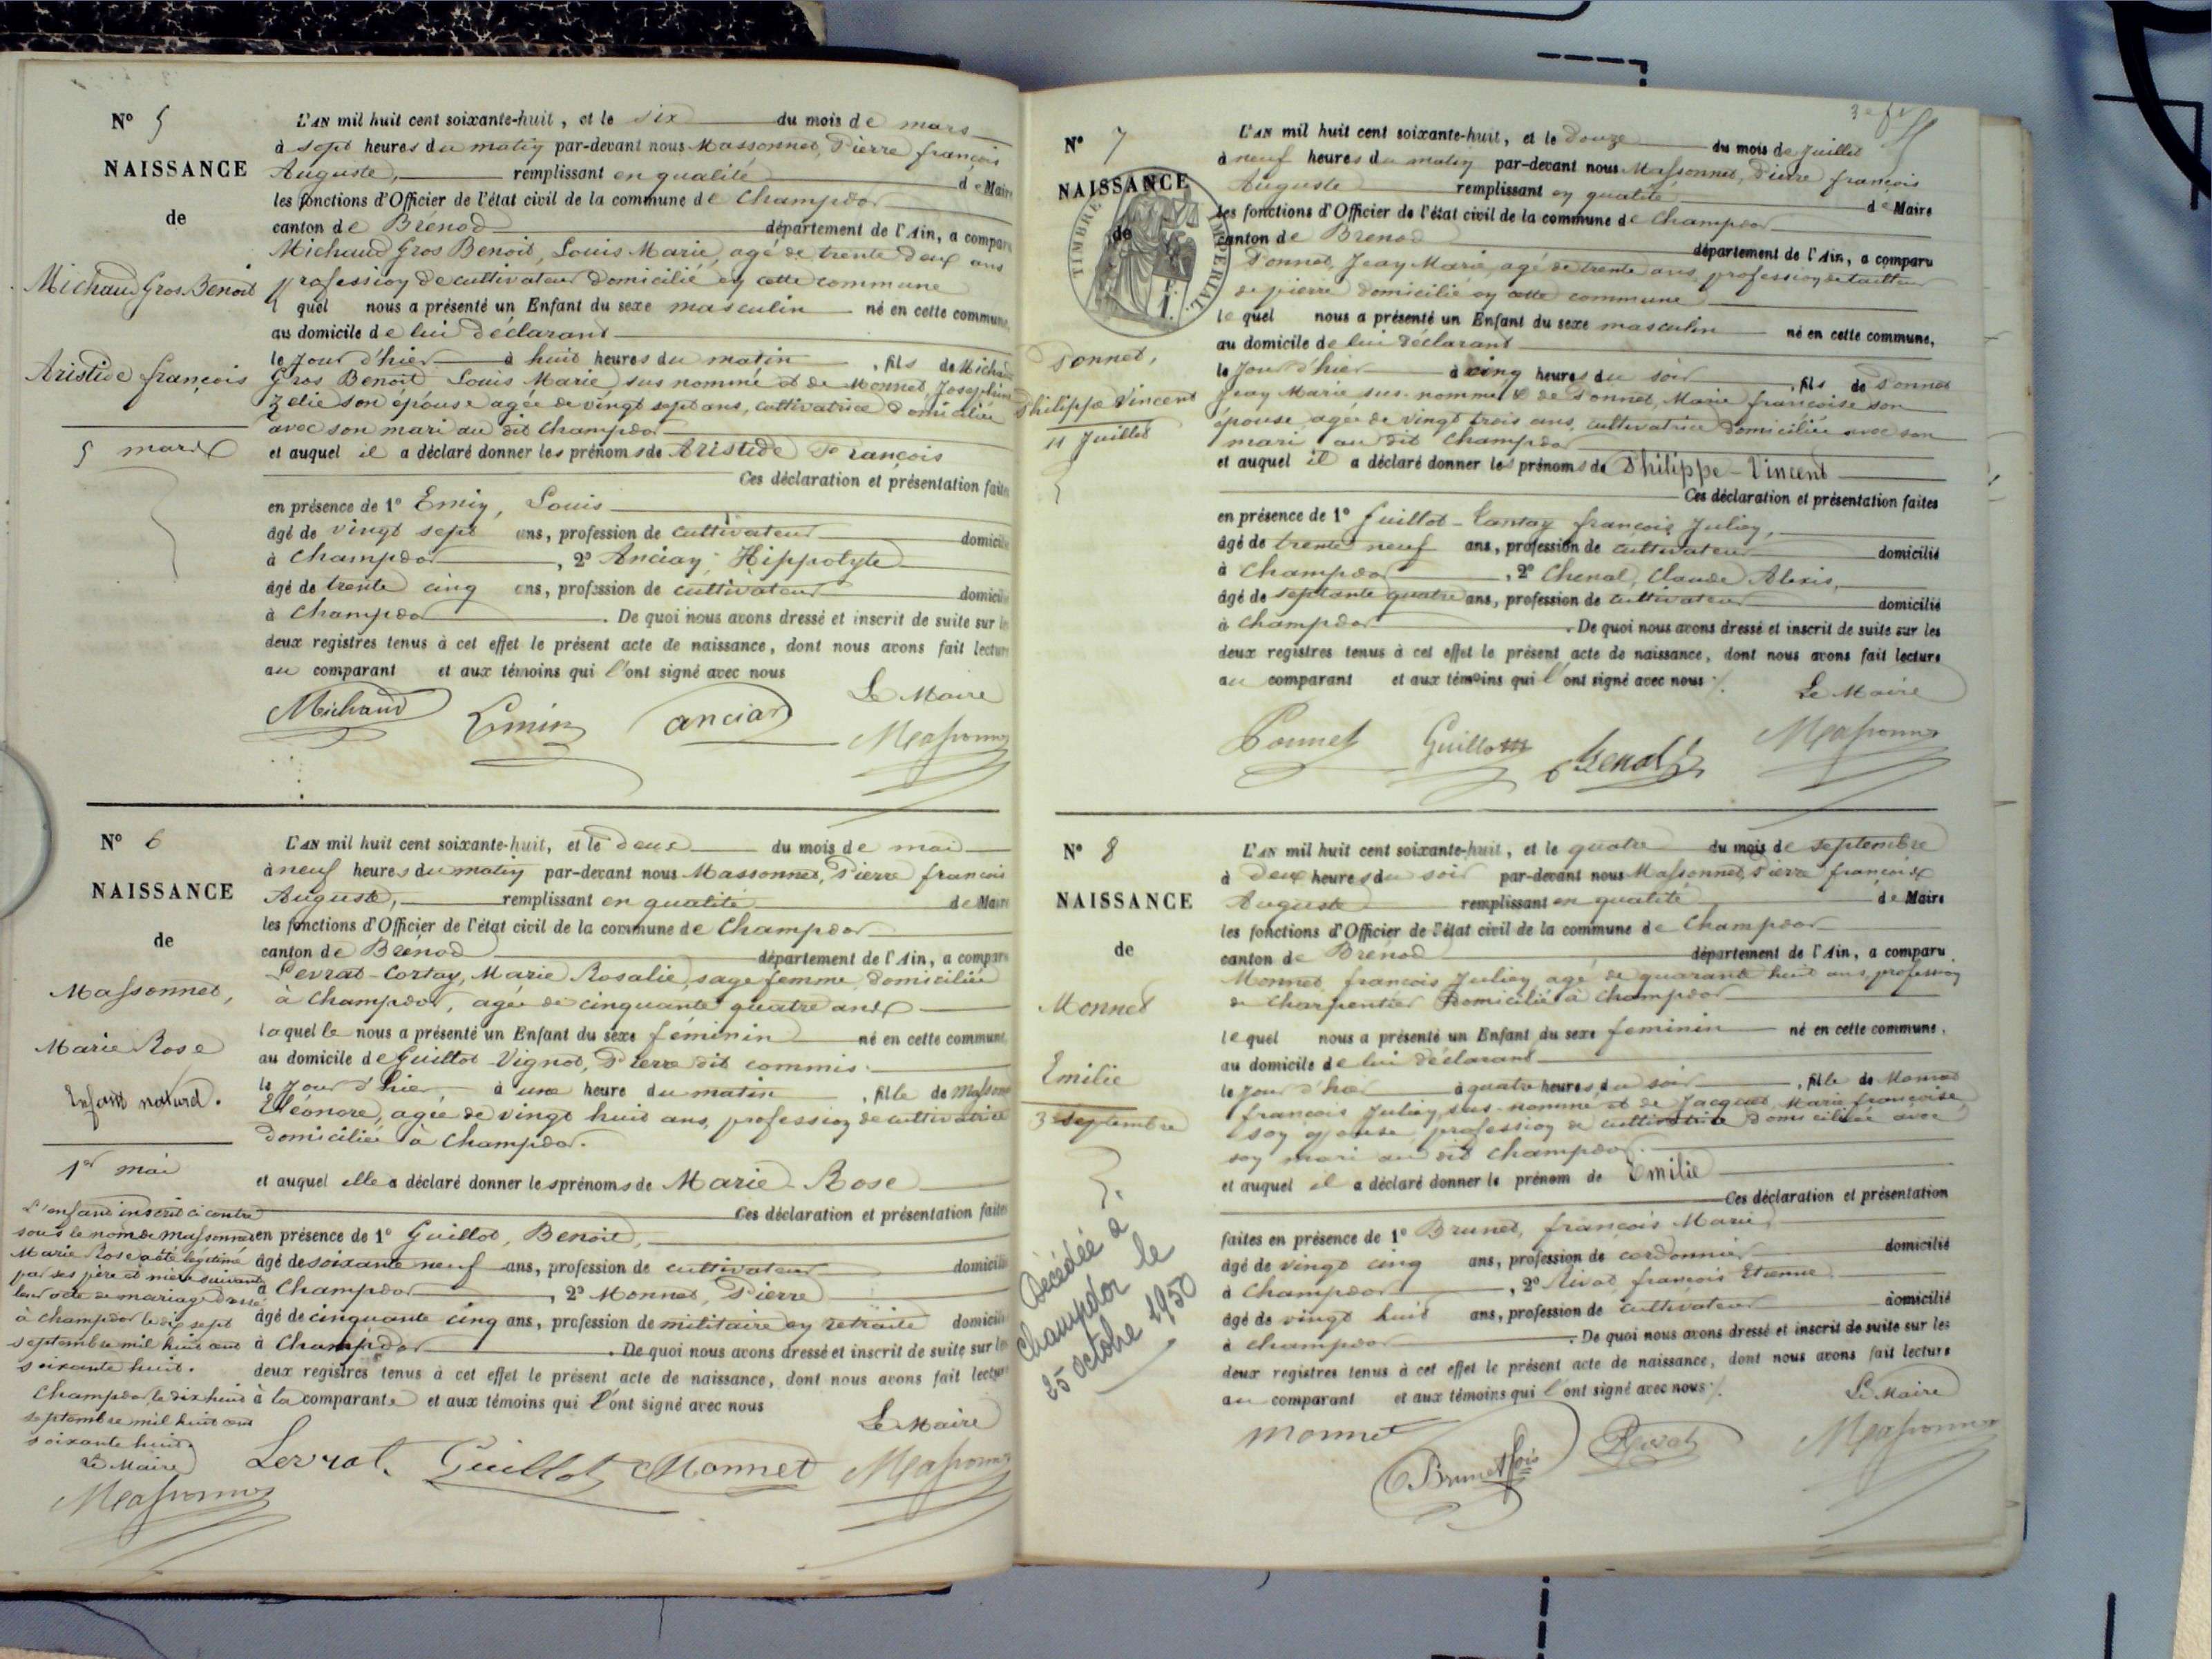 Nº 5
NAISSANCE
de
Michaud Gros Benoit
Aristide françois
5 mars
L'AN mil huit cent soixante-huit, et le six du mois de mars
à sept heures du matin par-devant nous Massonnet, Pierre françois
Auguste, remplissant en qualité de Maire
les fonctions d'Officier de l'état civil de la commune de Champdor
canton de Brénod département de l'Ain, a compar
Michaud Gros Benoit, Louis Marie, agé de trente deux ans
profession de cultivateur domicilié en cette commune
l quel nous a présenté un Enfant du sexe masculin né en cette commune,
au domicile de lui déclarant
le jour d'hier à huit heures du matin, fils de Micha
Gros Benoit Louis Marie sus nommé et de Monnet, Josephine
Zelie son épouse agée de vingt sept ans, cultivatrice domiciliée
avec son mari au dit Champdor
et auquel il a déclaré donner les prénoms de Aristide François
Ces déclaration et présentation faites
en présence de 1º Emin, Louis
âgé de vingt sept ans, profession de cultivateur domicilié
à Champdor, 2º Ancian, Hippolyte
âgé de trente cinq ans, profession de cultivateur domicilié
à Champdor. De quoi nous avons dressé et inscrit de suite sur les
deux registres tenus à cet effet le présent acte de naissance, dont nous avons fait lecture
au comparant et aux témoins qui l'ont signé avec nous
Le Maire
Michaud Emin ancian Massonnet
Nº 6
NAISSANCE
de
Massonnet,
Marie Rose
Enfant naturel.
1er mai
L'enfant inscrit ci contre
sous le nom de Massonnet
Marie Rose a été légitimé
par ses père et mère suivant
leur acte de mariage dressé
à Champdor le dix sept
septembre mil huit cent
soixante huit.
Champdor le dix huit
septembre mil huit cent
soixante huit.
Le Maire
Massonnet
L'AN mil huit cent soixante-huit, et le deux du mois de mai
à neuf heures du matin par-devant nous Massonnet, Pierre françois
Auguste, remplissant en qualité de Maire
les fonctions d'Officier de l'état civil de la commune de Champdor
canton de Brénod département de l'Ain, a comparu
Levrat-Cortay, Marie Rosalie, sage femme, domiciliée
à Champdor, agée de cinquante quatre ans
laquelle nous a présenté un Enfant du sexe féminin né en cette commune
au domicile de Guillot Vignot, Pierre dit commis
le jour d'hier à une heure du matin, fille de Massonnet
Eléonore, agée de vingt huit ans, profession de cultivatrice
domiciliée à Champdor.
et auquel elle a déclaré donner les prénoms de Marie-Rose
Ces déclaration et présentation faites
en présence de 1º Guillot, Benoit,
âgé de soixante neuf ans, profession de cultivateur domicilié
à Champdor, 2º Monnet, Pierre
âgé de cinquante cinq ans, profession de militaire en retraite domicilié
à Champdor. De quoi nous avons dressé et inscrit de suite sur les
deux registres tenus à cet effet le présent acte de naissance, dont nous avons fait lecture
à la comparante et aux témoins qui l'ont signé avec nous
Le Maire
Levrat. Guillot Monnet Massonnet
Nº 7
NAISSANCE
de
TIMBRE IMPERIAL
Ponnet,
Philippe Vincent
11 Juillet
L'AN mil huit cent soixante-huit, et le Douze du mois de Juillet
à neuf heures du matin par-devant nous Massonnet, Pierre françois
Auguste remplissant en qualité de Maire
les fonctions d'Officier de l'état civil de la commune de Champdor
canton de Brenod département de l'Ain, a comparu
Ponnet, Jean Marie, agé de trente ans profession de tailleur
de pierre domicilié en cette commune
lequel nous a présenté un Enfant du sexe masculin né en cette commune,
au domicile de lui déclarant
le jour d'hier à cinq heures du soir, fils de Ponnet
Jean Marie sus-nommé & de Ponnet, Marie françoise son
épouse agée de vingt trois ans, cultivatrice domiciliée avec son
mari au dit Champdor
et auquel il a déclaré donner les prénoms de Philippe-Vincent
Ces déclaration et présentation faites
en présence de 1º Guillot-Tantay françois Julien,
âgé de trente neuf ans, profession de cultivateur domicilié
à Champdor, 2º Chenal, Claude Alexis,
âgé de septante quatre ans, profession de cultivateur domicilié
à Champdor. De quoi nous avons dressé et inscrit de suite sur les
deux registres tenus à cet effet le présent acte de naissance, dont nous avons fait lecture
au comparant et aux témoins qui l'ont signé avec nous
Le Maire
Ponnet Guillot Chenal Massonnet
Nº 8
NAISSANCE
de
Monnet
Emilie
3 septembre
Décédée à
Champdor le
25 octobre 1950
L'AN mil huit cent soixante-huit, et le quatre du mois de septembre
à deux heures du soir par-devant nous Massonnet, Pierre françois
Auguste remplissant en qualité de Maire
les fonctions d'Officier de l'état civil de la commune de Champdor
canton de Brénod département de l'Ain, a comparu
Monnet, françois Julien agé de quarante huit ans, profession
de charpentier domicilié à Champdor
lequel nous a présenté un Enfant du sexe feminin né en cette commune,
au domicile de lui déclarant
le jour d'hier à quatre heures du soir, fille de Monnet
françois Julien, sus-nommé et de Jacquet, Marie françoise
son épouse, profession de cultivatrice domiciliée avec
son mari au dit Champdor.
et auquel il a déclaré donner le prénom de Emilie
Ces déclaration et présentation
faites en présence de 1º Brunet, françois Marie
âgé de vingt cinq ans, profession de cordonnier domicilié
à Champdor, 2º Rivat, françois Etienne
âgé de vingt huit ans, profession de cultivateur domicilié
à Champdor. De quoi nous avons dressé et inscrit de suite sur les
deux registres tenus à cet effet le présent acte de naissance, dont nous avons fait lecture
au comparant et aux témoins qui l'ont signé avec nous
Le Maire
Monnet Brunet fois Rivat Massonnet